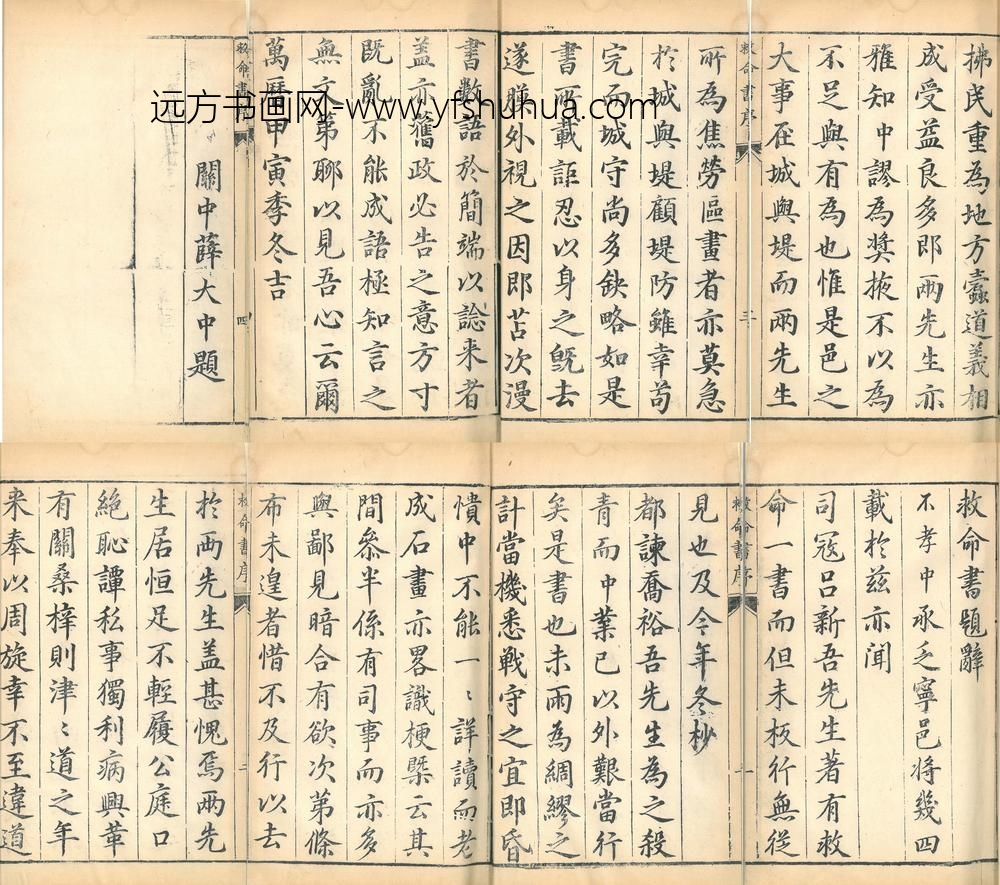 救命書題辭
不孝中承乏寧邑將幾四
載於茲亦聞
司寇呂新吾先生著有救
命一書而但未板行無從
救命書序
一
見也及今年冬杪
都諫喬裕吾先生為之殺
青而中業已以外艱當行
矣是書也未雨為綢繆之
計當機悉戰守之宜即昏
憒中不能一〻詳讀而老
成石畫亦畧識梗槩云其
間叅半係有司事而亦多
與鄙見暗合有欲次第條
布未遑者惜不及行以去
救命書序
二
於两先生盖甚愧焉兩先
生居恒足不輕履公庭口
絕恥譚私事獨利病興革
有關桑梓則津〻道之年
来奉以周旋幸不至違道
拂民重為地方蠧道義相
成受益良多即兩先生亦
雅知中謬為奬掖不以為
不足與有為也惟是邑之
大事在城與堤而兩先生
救命書序
三
所為焦勞區畫者亦莫急
於城與堤顧堤防雖幸苟
完而城守尚多缺略如是
書所載詎忍以身之旣去
遂膜外視之因即苫次漫
書數語於簡端以諗来者
盖亦舊政必告之意方寸
既亂不能成語極知言之
無文第聊以見吾心云爾
萬曆甲寅季冬吉
救命書
四
關中薛大中題
远方书画网-www.yfshuhua.com